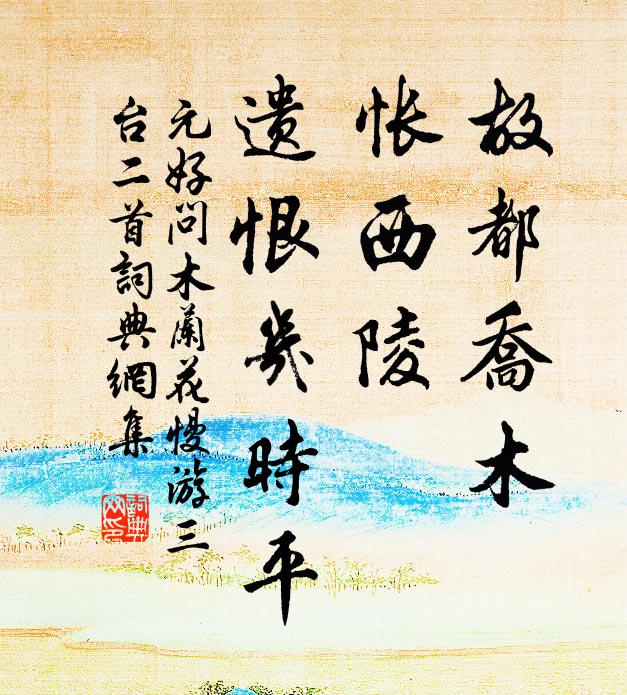 故都喬木
悵西陵
遺恨幾時平
元好問木蘭花慢游三
台二首詞典網集